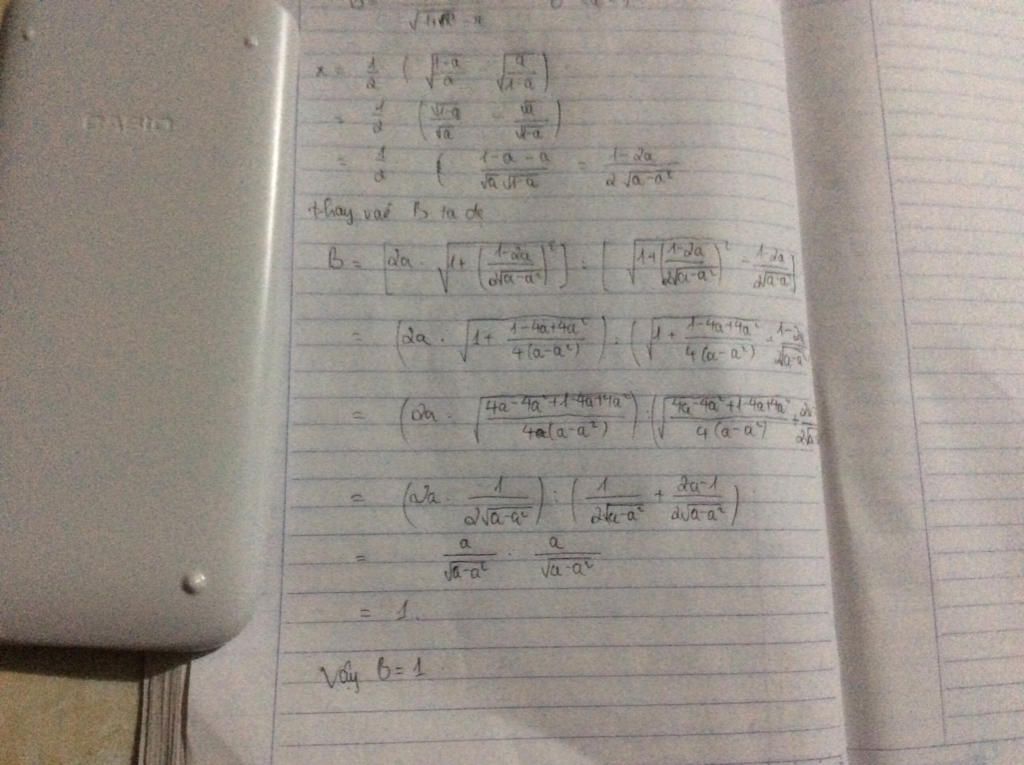 CASIO
x = 1/2 ( √((1-a)/a) - √(a/(1-a)) )
= 1/2 ( √(1-a)/√a - √a/√(1-a) )
= 1/2 ( (1-a-a)/(√a √(1-a)) = (1-2a)/(2√(a-a²))
thay vào B ta đc
B = [2a · √(1+((1-2a)/(2√(a-a²)))²)] : [√(1+((1-2a)/(2√(a-a²)))²) - (1-2a)/(2√(a-a²))]
= (2a · √(1+(1-4a+4a²)/(4(a-a²)))) : (√(1+(1-4a+4a²)/(4(a-a²))) - (1-2a)/(2√(a-a²))
= (2a · √((4a-4a²+1-4a+4a²)/(4(a-a²)))) : (√((4a-4a²+1-4a+4a²)/(4(a-a²))) +
= (2a · 1/(2√(a-a²))) : (1/(2√(a-a²)) + (2a-1)/(2√(a-a²)))
= a/√(a-a²) : a/√(a-a²)
= 1.
Vậy B = 1